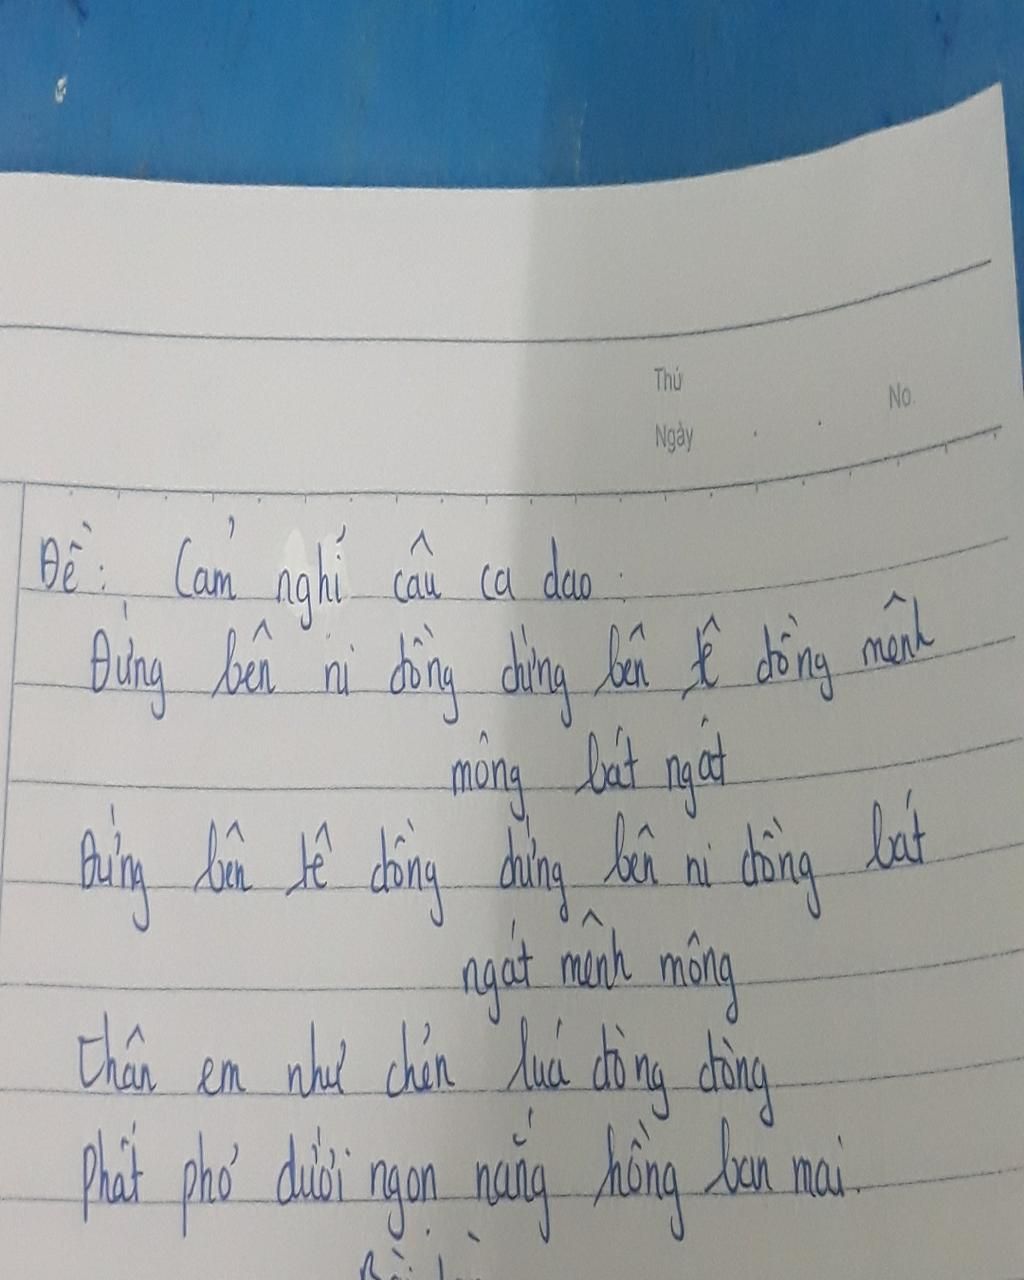 Thứ
No.
Ngày
Đề: Cảm nghỉ câu ca dao:
Đứng bên ni đồng đứng bên tê đồng mênh
mông bát ngát
Đứng bên tê đồng đứng bên ni đồng bát
ngát mênh mông
Thân em như chẽn lúa đòng đòng
Phất phơ dưới ngọn nắng hồng ban mai.